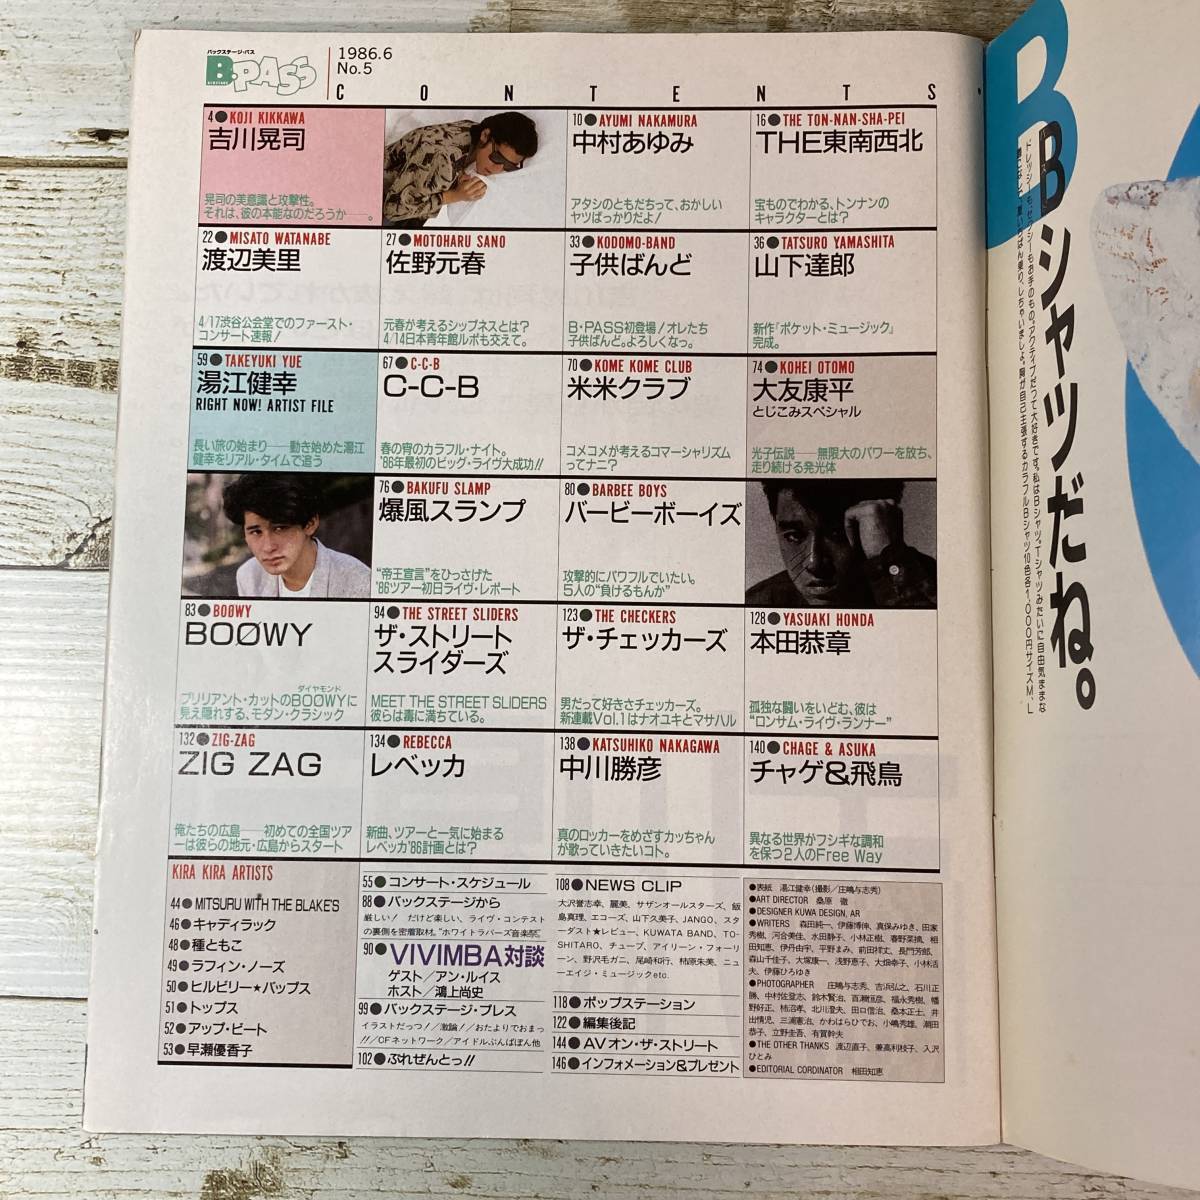 バックステージ・パス
B·PASS
1986.6
No.5
CONTENTS
4●KOJI KIKKAWA
吉川晃司
晃司の美意識と攻撃性。
それは、彼の本能なのだろうか――。
10●AYUMI NAKAMURA
中村あゆみ
アタシのともだちって、おかしい
ヤツばっかりだよ!
16●THE TON-NAN-SHA-PEI
THE東南西北
宝ものでわかる、トンナンの
キャラクターとは?
22●MISATO WATANABE
渡辺美里
4/17渋谷公会堂でのファースト・
コンサート速報!
27●MOTOHARU SANO
佐野元春
元春が考えるシップネスとは?
4/14日本青年館ルポも交えて。
33●KODOMO-BAND
子供ばんど
B・PASS初登場!オレたち
子供ばんど。よろしくなっ。
36●TATSURO YAMASHITA
山下達郎
新作『ポケット・ミュージック』
完成。
59●TAKEYUKI YUE
湯江健幸
RIGHT NOW! ARTIST FILE
長い旅の始まり――動き始めた湯江
健幸をリアル・タイムで追う
67●C-C-B
C-C-B
春の宵のカラフル・ナイト。
'86年最初のビッグ・ライヴ大成功!!
70●KOME KOME CLUB
米米クラブ
コメコメが考えるコマーシャリズム
ってナニ?
74●KOHEI OTOMO
大友康平
とじこみスペシャル
光子伝説――無限大のパワーを放ち、
走り続ける発光体
76●BAKUFU SLAMP
爆風スランプ
“帝王宣言”をひっさげた
'86ツアー初日ライヴ・レポート
80●BARBEE BOYS
バービーボーイズ
攻撃的にパワフルでいたい。
5人の“負けるもんか”
83●BOØWY
BOØWY
ブリリアント・カットのBOØWYに
ダイヤモンド
見え隠れする、モダン・クラシック
94●THE STREET SLIDERS
ザ・ストリート
スライダーズ
MEET THE STREET SLIDERS
彼らは毒に満ちている。
123●THE CHECKERS
ザ・チェッカーズ
男だって好きさチェッカーズ。
新連載Vol.1はナオユキとマサハル
128●YASUAKI HONDA
本田恭章
孤独な闘いをいどむ、彼は
“ロンサム・ライヴ・ランナー”
132●ZIG-ZAG
ZIG ZAG
俺たちの広島――初めての全国ツア
ーは彼らの地元・広島からスタート
134●REBECCA
レベッカ
新曲、ツアーと一気に始まる
レベッカ'86計画とは?
138●KATSUHIKO NAKAGAWA
中川勝彦
真のロッカーをめざすカッちゃん
が歌っていきたいコト。
140●CHAGE & ASUKA
チャゲ&飛鳥
異なる世界がフシギな調和
を保つ2人のFree Way
KIRA KIRA ARTISTS
44●MITSURU WITH THE BLAKE'S
46●キャディラック
48●種ともこ
49●ラフィン・ノーズ
50●ヒルビリー★バップス
51●トップス
52●アップ・ビート
53●早瀬優香子
55●コンサート・スケジュール
88●バックステージから
厳しい! だけど楽しい、ライヴ・コンテスト
の裏側を密着取材。“ホワイトラバーズ音楽祭”
90●VIVIMBA対談
ゲスト/アン・ルイス
ホスト/鴻上尚史
99●バックステージ・プレス
イラストだっつ!/激論!/おたよりでおまっ
!!/OFネットワーク/アイドルぷんぽぽん他
102●ぷれぜんとっ!!
108●NEWS CLIP
大沢誉志幸、麗美、サザンオールスターズ、飯
島真理、エコーズ、山下久美子、JANGO、スタ
ーダスト★レビュー、KUWATA BAND、TO-
SHITARO、チューブ、アイリーン・フォーリ
ーン、野沢毛ガニ、尾崎和行、柿原朱美、ニュ
ーエイジ・ミュージックetc.
118●ポップステーション
122●編集後記
144●AVオン・ザ・ストリート
146●インフォメーション&プレゼント
●表紙 湯江健幸(撮影/庄嶋与志秀)
●ART DIRECTOR 桑原 徹
●DESIGNER KUWA DESIGN, AR
●WRITERS 森田純一、伊藤博伸、真保みゆき、田家
秀樹、河合美佳、水田静子、小林正樹、春野菜摘、相
田知恵、伊丹由宇、平野まみ、前田祥丈、長門芳郎、
森山千佳子、大塚康一、浅野恵子、大畑幸子、小林活
夫、伊藤ひろゆき
●PHOTOGRAPHER 庄嶋与志秀、吉浜弘之、石川正
●THE OTHER THANKS 渡辺直子、兼高利枝子、入沢
ひとみ
●EDITORIAL CORDINATOR 相田知恵
B
Bシャツだね。